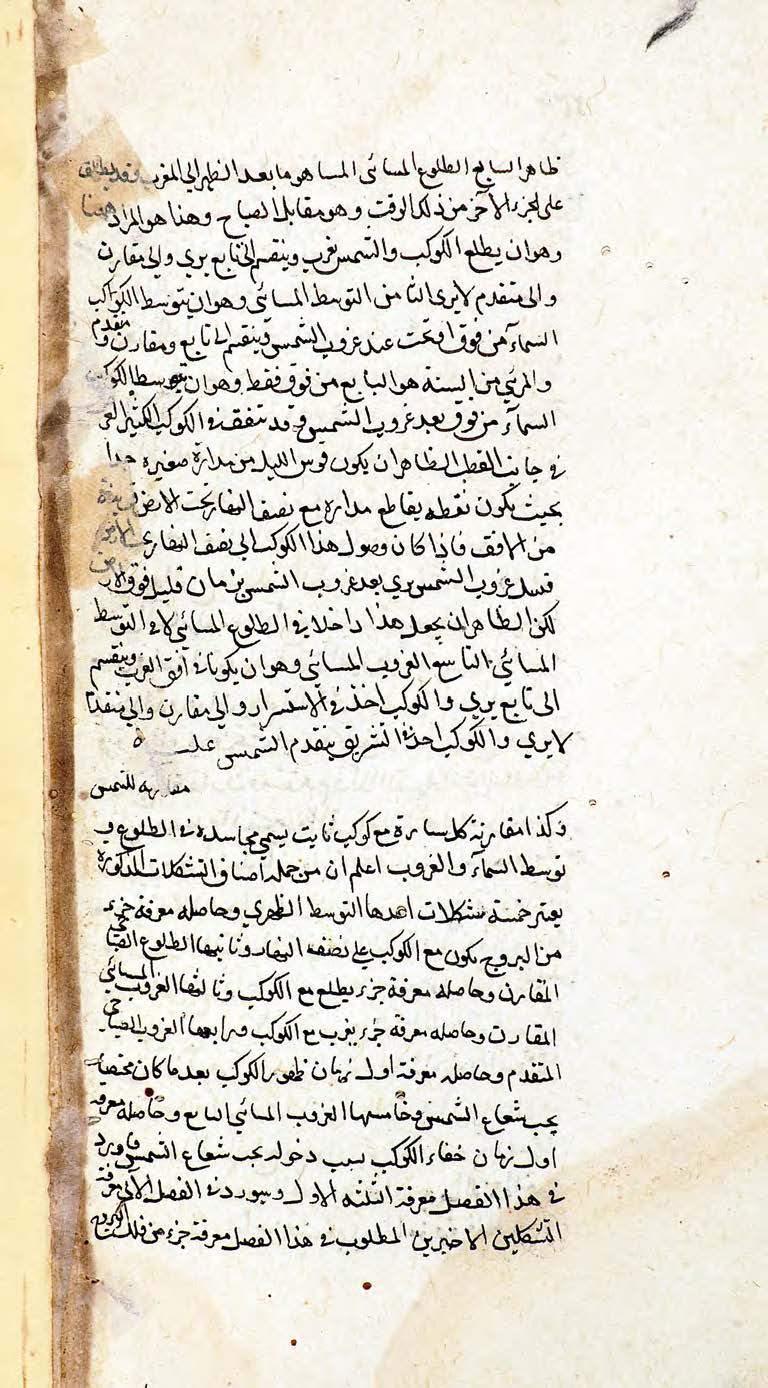 ظاهرا السابع الطلوع المسائى المسا هو ما بعد الظهر الى المغرب وقد يطلق
على الجزء الآخر من ذلك الوقت وهو مقابل الصباح وهذا هو المراد ههنا
وهو ان يطلع الكوكب والشمس تغرب وينقسم الى تابع يري والى مقارن
والى متقدم لا يرى الثامن التوسط المسائي وهو ان يتوسط الكواكب
السماء من فوق او تحت عند غروب الشمس وينقسم الى تابع ومقارن ومتقدم
والمرئي من الستة هو التابع من فوق فقط وهو ان يتوسط الكوكب
السماء من فوق بعد غروب الشمس وقد تتفق في الكوكب الكثير العرض
في جانب القطب الظاهر ان يكون قوس الليل من مداره صغيرة جدا
بحيث يكون نقطه يقاطع مداره مع نصف النهار تحت الارض قريبة
من الافق فاذا كان وصول هذا الكوكب الى نصف النهار تحت الارض
قبيل غروب الشمس يري بعد غروب الشمس بزمان قليل فوق الارض
لكن الظاهر ان يجعل هذا داخلا في الطلوع المسائي لا في التوسط
المسائي التاسع الغروب المسائي وهو ان يكونا في افق الغرب وينقسم
الى تابع يري والكوكب اخذ في الاستسرار والى مقارن والى متقدم
لا يري والكوكب اخذ في التشريق بتقدم الشمس عليه
مقارنه للشمس
وكذا مقارنة كل سيارة مع كوكب ثابت يسمي مجاسده في الطلوع و
توسط السماء والغروب اعلم ان من جملة اصناف التشكلات المذكورة
يعتبر خمسة تشكلات احدها التوسط الظهري وحاصله معرفة جزء
من البروج يكون مع الكوكب على نصف النهار وثانيها الطلوع الصباحي
المقارن وحاصله معرفة جزء يطلع مع الكوكب وثالثها الغروب المسائي
المقارن وحاصله معرفة جزء يغرب مع الكوكب ورابعها الغروب الصباحي
المتقدم وحاصله معرفة اول زمان ظهور الكوكب بعد ما كان مختفيا
تحت شعاع الشمس وخامسها الغروب المسائي التابع وحاصله معرفة
اول زمان خفاء الكوكب بسبب دخوله تحت شعاع الشمس فاورد
في هذا الفصل معرفة الثلثه الاول وسيورد في الفصل الآتي معرفة
التشكلين الاخيرين المطلوب في هذا الفصل معرفة جزء من فلك البروج